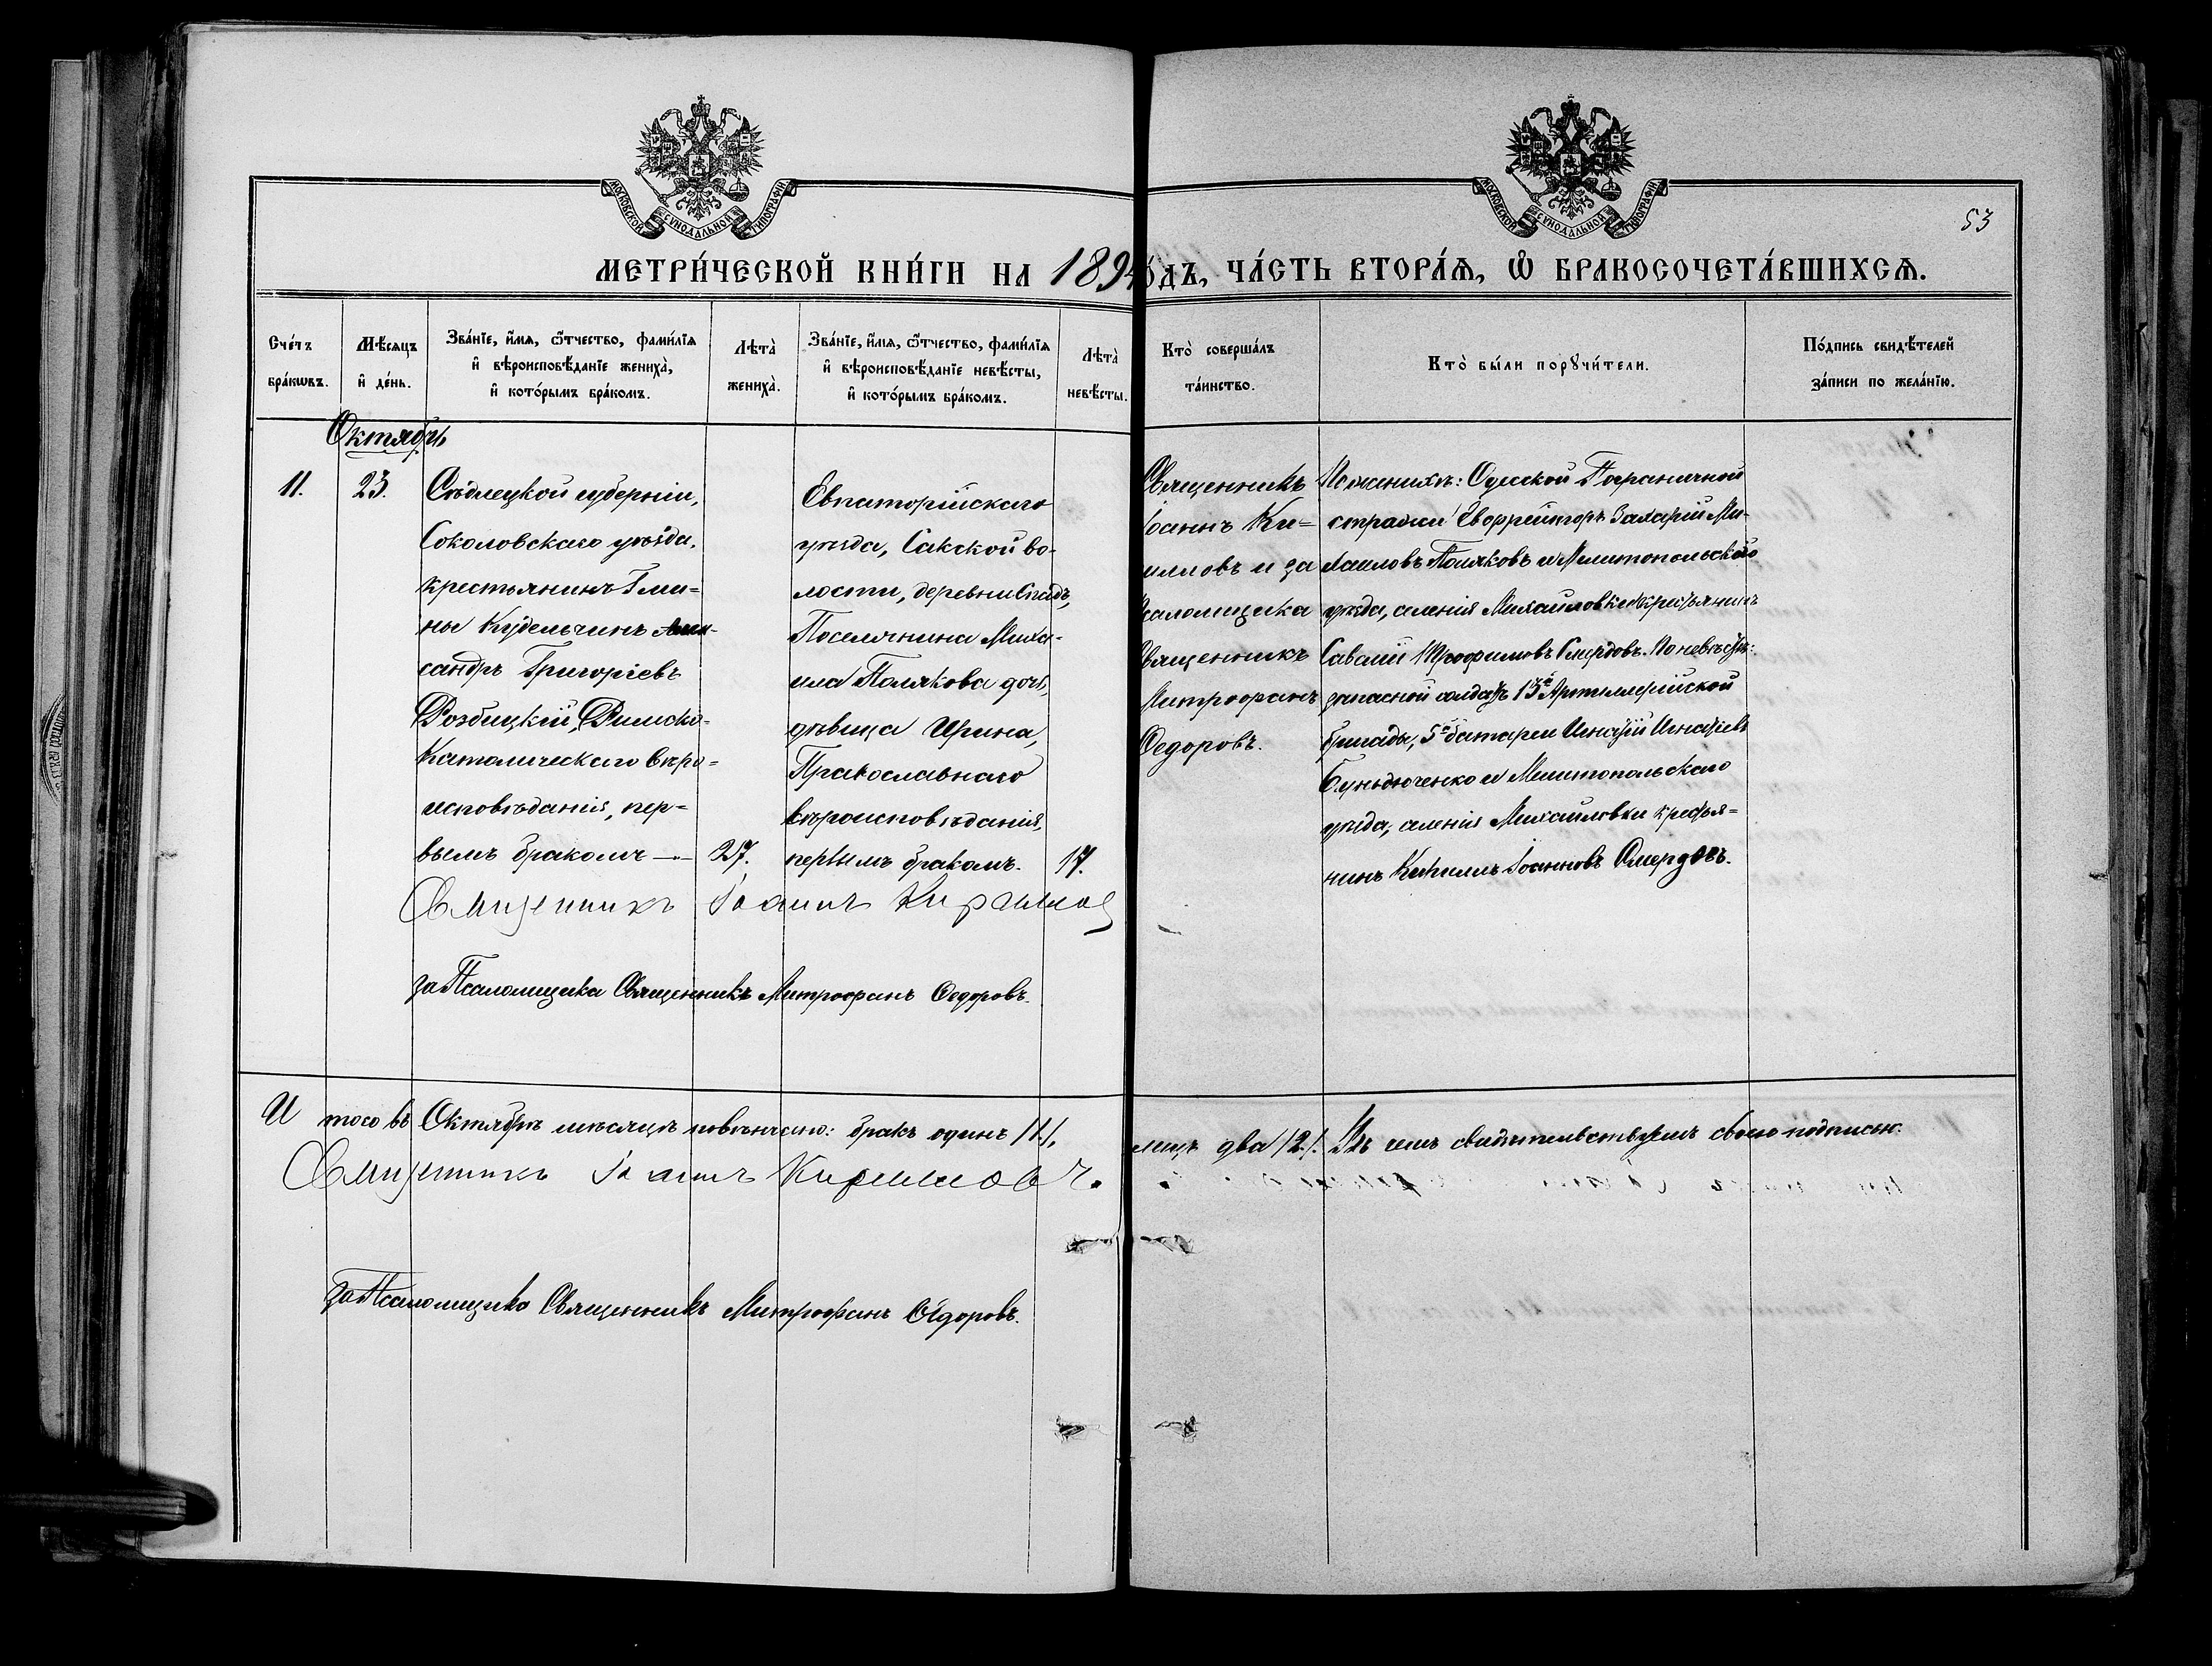 МОСКОВСКОЙ СѴНОДАЛЬНОЙ ТИПОГРАФІИ
МОСКОВСКОЙ СѴНОДАЛЬНОЙ ТИПОГРАФІИ
53
МЕТРИ́ЧЕСКОЙ КНИ́ГИ НА 189
О́ДЪ, ЧА́СТЬ ВТОРА́Ѧ, Ѽ БРАКОСОЧЕТА́ВШИХСѦ.
Сче́тъ
бра́кѡвъ.
Мѣ́сѧцъ
и҆ де́нь.
Зва́нїе, и҆́мѧ, ѻ҆́тчество, фами́лїѧ
и҆ вѣроисповѣ́данїе жениха̀,
и҆ кото́рымъ бра́комъ.
Лѣта̀
жениха̀.
Зва́нїе, и҆́мѧ, ѻ҆́тчество, фами́лїѧ
и҆ вѣроисповѣ́данїе невѣ́сты,
и҆ кото́рымъ бра́комъ.
Лѣта̀
невѣ́сты.
Кто̀ соверша́лъ
та́инство.
Кто̀ бы́ли порꙋчи́тели.
По́дпись свидѣ́телей
за́писи по жела́нїю.
Октябрь
11.
23.
Сѣдлецкой губерніи,
Соколовскаго уѣзда,
крестьянинъ Гми=
ны Кудельчинъ Алек-
сандръ Григоріевъ
Розбицкій, Римско-
Католическаго вѣро=
исповѣданія, пер=
вымъ бракомъ —
27.
Евпаторійскаго
уѣзда, Сакской во-
лости, деревни
Поселянина Миха-
ила Полякова дочь,
дѣвица Ирина,
Православнаго
вѣроисповѣданія,
первымъ бракомъ.
17.
Священникъ
Іоаннъ Ки=
иловъ и за
Псаломщика
Священникъ
Митрофанъ
Ѳедоровъ.
По женихѣ: Одесской Пограничной
стражи Ефрейторъ Захарій Ми-
хаиловъ Поляковъ и Мелитопольскаго
уѣзда, селенія Михайловки крестьянинъ
Савелій Трофимовъ Смердовъ. По невѣстѣ:
запасной солдатъ 13й Артиллерійской
бригады, 5й батареи Игнатій Игнатіевъ
и Мелитопольскаго
уѣзда, селенія Михайловки крестья=
нинъ Кириллъ Іоанновъ Смердовъ.
Священникъ Іоаннъ Кирилловъ
за Псаломщика Священникъ Митрофанъ Ѳедоровъ.
Итого въ Октябрѣ мѣсяцѣ повѣнчано: бракъ одинъ /1./,
лицъ два /2./. Въ чемъ свидѣтельствуемъ своею подписью.
Священникъ Іоаннъ Кирилловъ.
за Псаломщика Священникъ Митрофанъ Ѳедоровъ.